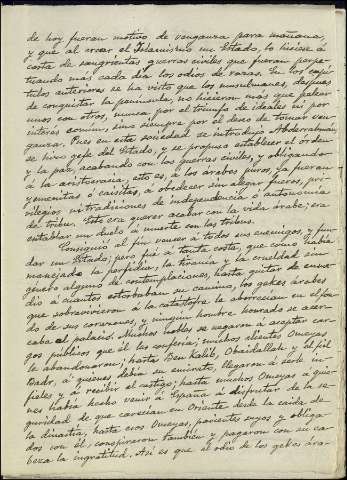 de hoy fueran motivo de venganza para mañana,
y que al crear el Islamismo un Estado, lo hiciese á
costa de sangrientas guerras civiles que fueran perpe-
tuando más cada día los odios de razas. En los capí-
tulos anteriores se ha visto que los musulmanes, después
de conquistar la península, no hicieron más que pelear
unos con otros, nunca por el triunfo de ideales ni por
interés común, sino siempre por el deseo de tomar ven-
ganza. Pues en esta sociedad se introdujo Abderrahman,
se hizo gefe del Estado, y se propuso establecer el órden
y la paz, acabando con las guerras civiles, y obligando
á la aristocracia, esto es, á los árabes puros, ya fueran
yemenitas ó caisitas, á obedecer sin alegar fueros, pri-
vilegios ni tradiciones de independencia ó autonomía
de tribu. Esto era querer acabar con la vida árabe; era
entablar un duelo á muerte con las tribus.
Consiguió al fin vencer á todos sus enemigos, y fun-
dar un Estado; pero fué á tanta costa, que como había
manejado la perfidia, la tiranía y la crueldad sin
género alguno de contemplaciones, hasta quitar de enme-
dio á cuantos estorbaban su camino, los gekes árabes
que sobrevivieron á la catástrofe la aborrecian en el fon-
do de sus corazones, y ningun hombre honrado se acer-
caba al palacio. Muchos nobles se negaron á aceptar car-
gos públicos que él les conferia; muchos clientes Omeyas
le abandonaron; hasta Ben Kaleb, Obaidallah y el fiel
Badr, á quienes debía su emirato, llegaron á serle in-
fieles y á recibir el castigo; hasta muchos Omeyas á quie-
nes había hecho venir á España á disfrutar de la se-
guridad de que carecían en Oriente desde la caida de
la dinastía, hasta esos Omeyas, parientes suyos y obliga-
dos con él, conspiraron tambien y pagaron con su ca-
beza la ingratitud. Así es que el odio de los gekes ára-